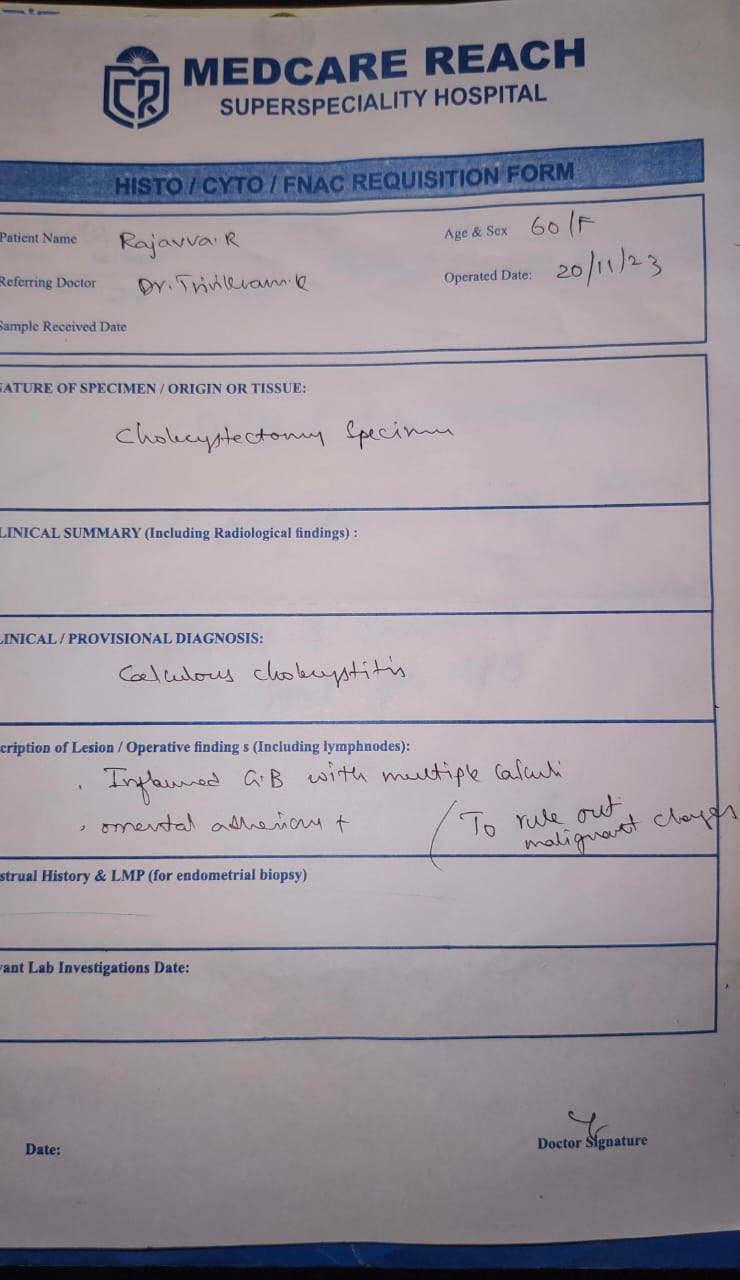 MEDCARE REACH
SUPERSPECIALITY HOSPITAL
HISTO / CYTO / FNAC REQUISITION FORM
Patient Name Rajavva.R Age & Sex 60/F
Referring Doctor Dr. Trivikram.R Operated Date: 20/11/23
Sample Received Date
NATURE OF SPECIMEN / ORIGIN OR TISSUE:
Cholecystectomy Specimen
LINICAL SUMMARY (Including Radiological findings) :
LINICAL / PROVISIONAL DIAGNOSIS:
Calculous cholecystitis
cription of Lesion / Operative finding s (Including lymphnodes):
. Inflamed G.B with multiple Calculi
, omental adhesions + ( To rule out
malignant changes
strual History & LMP (for endometrial biopsy)
vant Lab Investigations Date:
Date: Doctor Signature